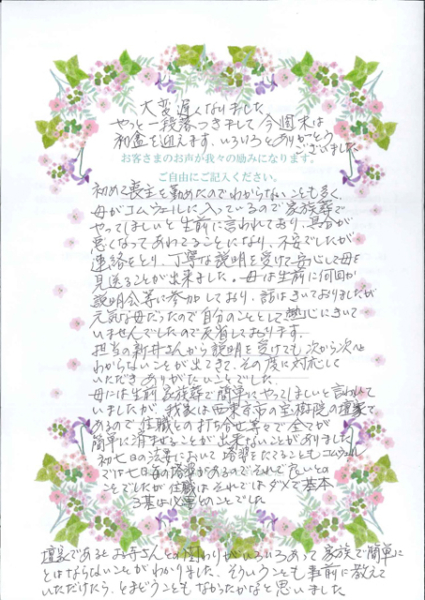 大変遅くなりました
やっと一段落つきまして今週末は
初盆を迎えます。いろいろとありがとう
ございました
お客さまのお声が我々の励みになります。
ご自由にご記入ください。
初めて喪主を勤めたのでわからないことも多く、
母がコムウェールに入っているので家族葬で
やってほしいと生前に言われており、具合が
悪くなってあわてることになり、不安でしたが
連絡をとり、丁寧な説明を受けて安心して母を
見送ることが出来ました。母は生前に何回か
説明会等に参加しており、話はきいておりましたが
元気な母だったので自分のこととして にきいて
いませんでしたので反省しております。
担当の新井さんから説明を受けても次から次へ
わからないことが出てきて、その度に対応して
いただきありがたいことでした。
母には生前家族葬で簡単にやってほしいと言われて
いましたが、我家は西東京市の宝樹院の檀家で
あるので住職との打ち合せ等々で全てが
簡単に済ませることが出来ないことがありました
初七日の法要において塔婆をたてることもコムウェール
では七日目の塔婆があるのでそれで良いとの
ことでしたが住職はそれではダメで基本
3基は必要とのことでした
檀家であるとお寺さんとの関わりがいろいろあって家族で簡単に
とはならないことがわかりました。そういうことも事前に教えて
いただけたら、とまどうこともなかったかなと思いました